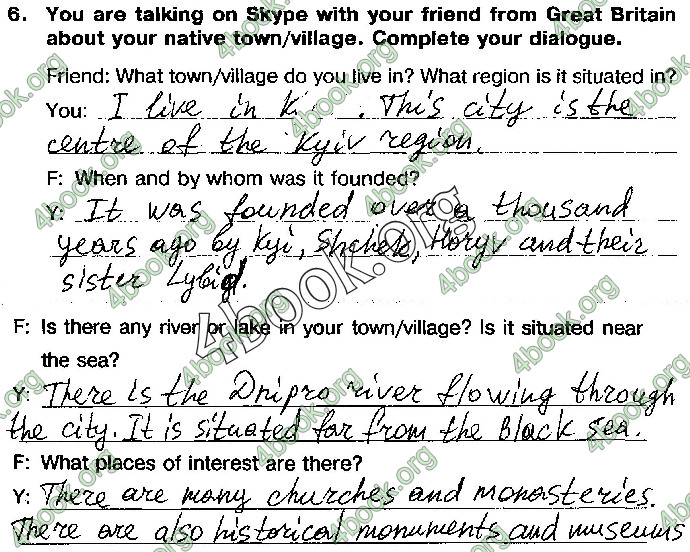 6. You are talking on Skype with your friend from Great Britain
about your native town/village. Complete your dialogue.
Friend: What town/village do you live in? What region is it situated in?
You: I live in K . This city is the
centre of the Kyiv region.
F: When and by whom was it founded?
Y: It was founded over a thousand
years ago by Kyi, Shchek, Horyv and their
sister Lybid.
F: Is there any river or lake in your town/village? Is it situated near
the sea?
Y: There is the Dnipro river flowing through
the city. It is situated far from the Black sea.
F: What places of interest are there?
Y: There are many churches and monasteries.
There are also historical monuments and museums
4book.org